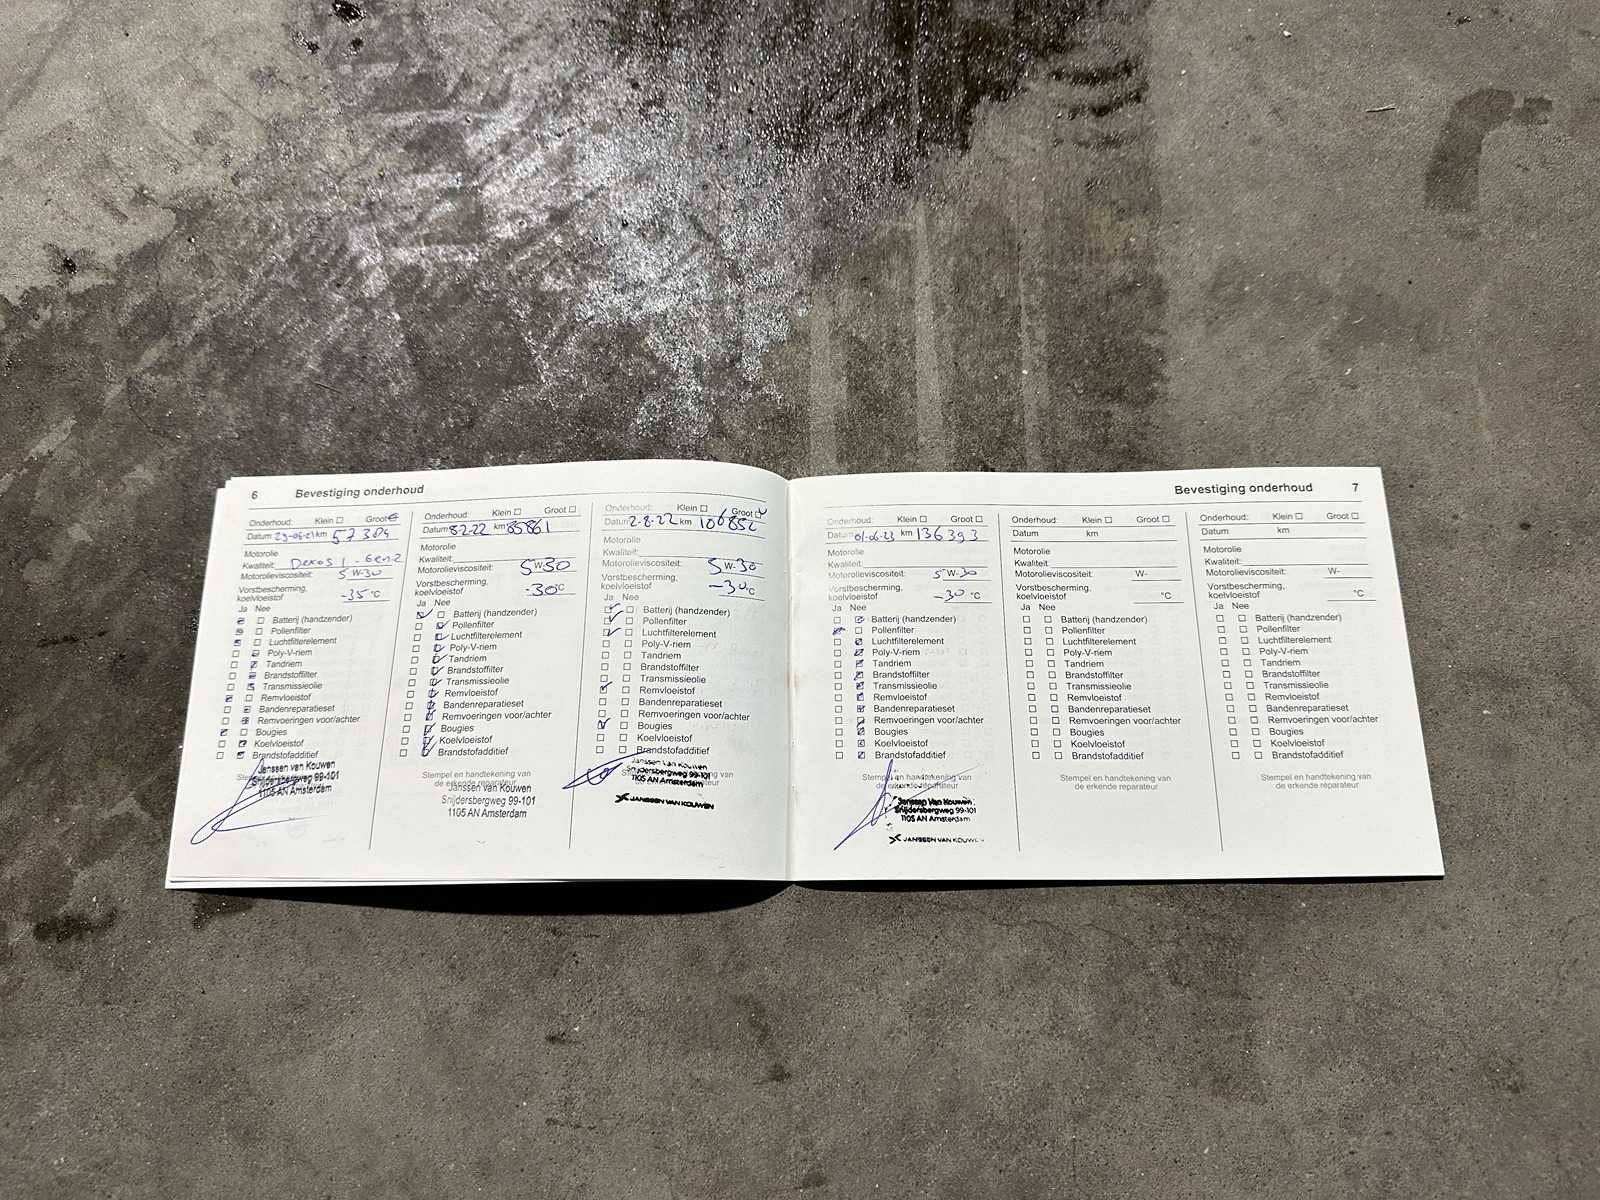 6 Bevestiging onderhoud
Onderhoud: Klein Groot
Datum 29-06-21 km 57304
Motorolie
Kwaliteit: Dexos 1 - Gen2
Motorolieviscositeit: 5 W-30
Vorstbescherming,
koelvloeistof -35 °C
Ja Nee
Batterij (handzender)
Pollenfilter
Luchtfilterelement
Poly-V-riem
Tandriem
Brandstoffilter
Transmissieolie
Remvloeistof
Bandenreparatieset
Remvoeringen voor/achter
Bougies
Koelvloeistof
Brandstofadditief
Janssen van Kouwen
Snijdersbergweg 99-101
1105 AN Amsterdam
Onderhoud: Klein Groot
Datum 8-2-22 km 85861
Motorolie
Kwaliteit:
Motorolieviscositeit: 5 W-30
Vorstbescherming,
koelvloeistof -30 °C
Ja Nee
Batterij (handzender)
Pollenfilter
Luchtfilterelement
Poly-V-riem
Tandriem
Brandstoffilter
Transmissieolie
Remvloeistof
Bandenreparatieset
Remvoeringen voor/achter
Bougies
Koelvloeistof
Brandstofadditief
Stempel en handtekening van
de erkende reparateur
Janssen van Kouwen
Snijdersbergweg 99-101
1105 AN Amsterdam
Onderhoud: Klein Groot
Datum 2-8-22 km 106852
Motorolie
Kwaliteit:
Motorolieviscositeit: 5 W-30
Vorstbescherming,
koelvloeistof -30 °C
Ja Nee
Batterij (handzender)
Pollenfilter
Luchtfilterelement
Poly-V-riem
Tandriem
Brandstoffilter
Transmissieolie
Remvloeistof
Bandenreparatieset
Remvoeringen voor/achter
Bougies
Koelvloeistof
Brandstofadditief
Janssen van Kouwen
Snijdersbergweg 99-101
1105 AN Amsterdam
JANSSEN VAN KOUWEN
Bevestiging onderhoud 7
Onderhoud: Klein Groot
Datum 01-06-23 km 136393
Motorolie
Kwaliteit:
Motorolieviscositeit: 5 W-30
Vorstbescherming,
koelvloeistof -30 °C
Ja Nee
Batterij (handzender)
Pollenfilter
Luchtfilterelement
Poly-V-riem
Tandriem
Brandstoffilter
Transmissieolie
Remvloeistof
Bandenreparatieset
Remvoeringen voor/achter
Bougies
Koelvloeistof
Brandstofadditief
Stempel en handtekening van
de erkende reparateur
Janssen Van Kouwen
Snijdersbergweg 99-101
1105 AN Amsterdam
JANSSEN VAN KOUWEN
Onderhoud: Klein Groot
Datum km
Motorolie
Kwaliteit:
Motorolieviscositeit: W-
Vorstbescherming,
koelvloeistof °C
Ja Nee
Batterij (handzender)
Pollenfilter
Luchtfilterelement
Poly-V-riem
Tandriem
Brandstoffilter
Transmissieolie
Remvloeistof
Bandenreparatieset
Remvoeringen voor/achter
Bougies
Koelvloeistof
Brandstofadditief
Stempel en handtekening van
de erkende reparateur
Onderhoud: Klein Groot
Datum km
Motorolie
Kwaliteit:
Motorolieviscositeit: W-
Vorstbescherming,
koelvloeistof °C
Ja Nee
Batterij (handzender)
Pollenfilter
Luchtfilterelement
Poly-V-riem
Tandriem
Brandstoffilter
Transmissieolie
Remvloeistof
Bandenreparatieset
Remvoeringen voor/achter
Bougies
Koelvloeistof
Brandstofadditief
Stempel en handtekening van
de erkende reparateur